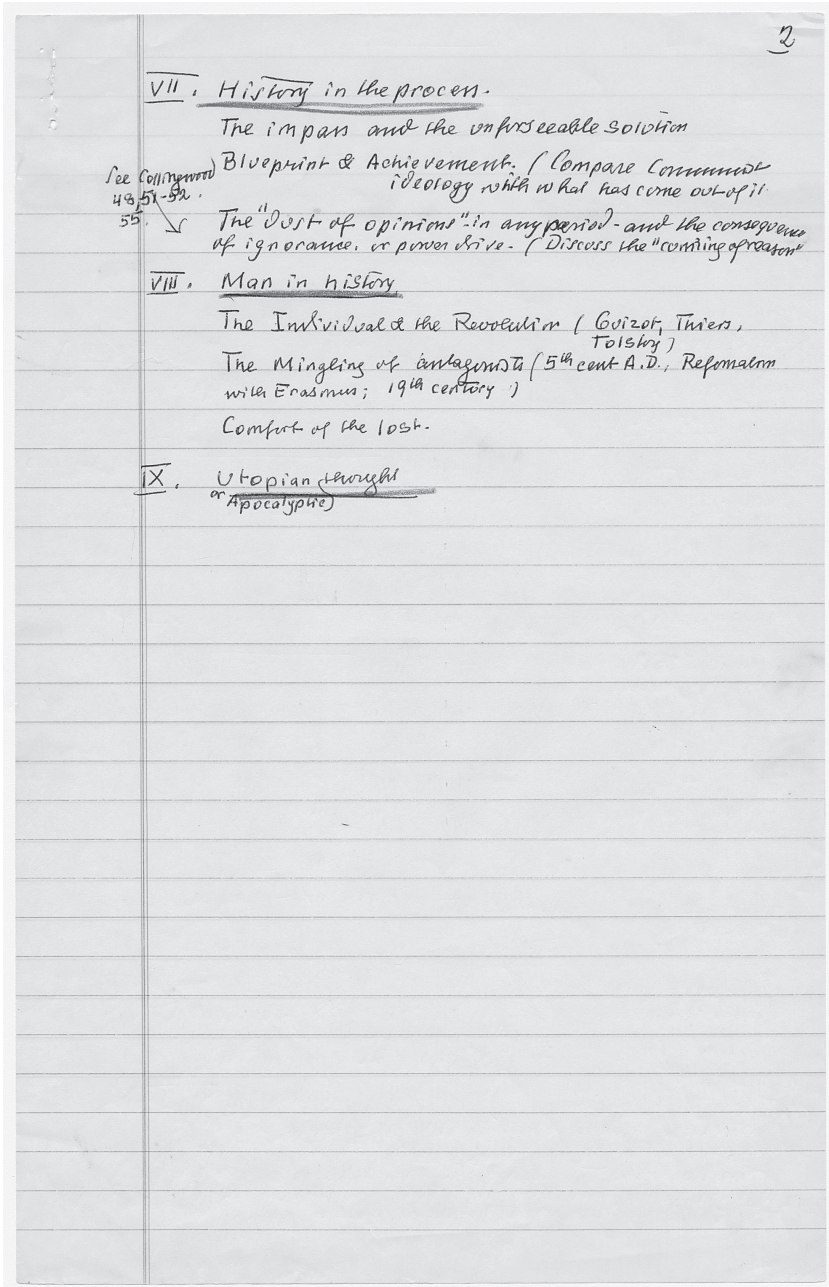 2
VII. History in the process.
The impass and the unforseeable solution
Blueprint & Achievement. (Compare Communist
ideology with what has come out of it.
See Collingwood)
48, 51-52.
55.
The "dust of opinions" in any period - and the consequence
of ignorance, or power drive. (Discuss the "cunning of reason"
VIII. Man in history
The Individual & the Revolution (Guizot, Thiers,
Tolstoy)
The Mingling of antagonists (5th cent A.D., Reformation
with Erasmus; 19th century)
Comfort of the lost.
IX. Utopian thought
or Apocalyptic)